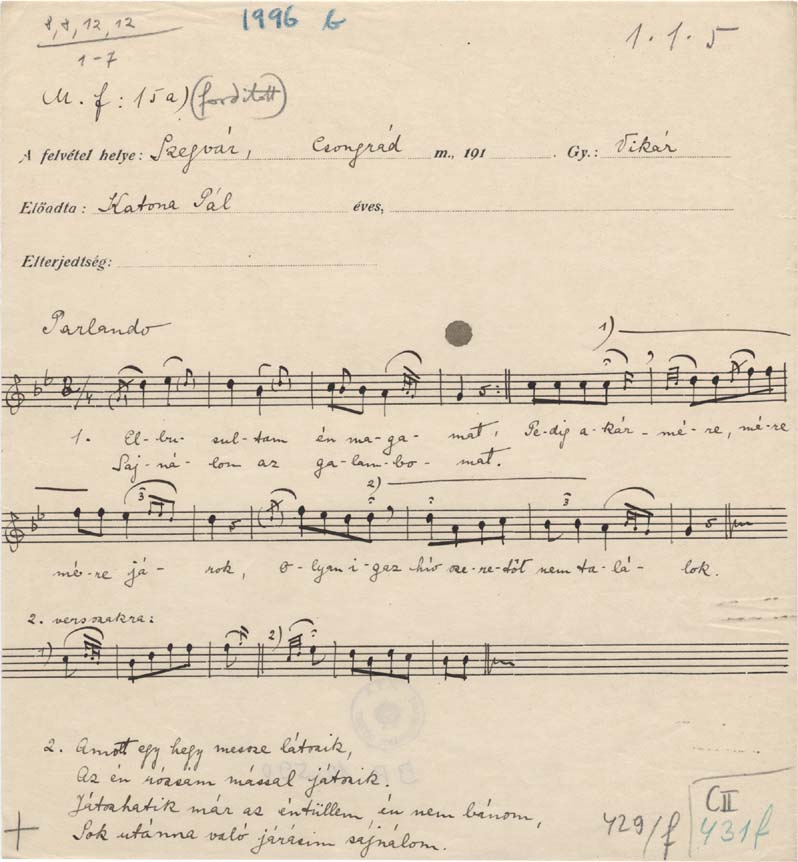 8, 8, 12, 12
1-7
1996 b
1.1.5
M. f: 15a) (fordított)
A felvétel helye: Szegvár, Csongrád m., 191 . Gy.: Vikár
Előadta: Katona Pál éves,
Elterjedtség:
Parlando
1)
1. El-bu-sul-tam én ma-ga-mat, Pe-dig a-kár-mé-re, mé-re
Saj-ná-lom az ga-lam-bo-mat.
3 2) 3
mé-re já-rok, O-lyan i-gaz hív sze-re-tőt nem ta-lá-lok.
2. versszakra:
1) 2)
2. Amott egy hegy messze látszik,
Az én rózsám mással játszik.
Játszhatik már az éntüllem, én nem bánom,
Sok utánna való járásim sajnálom.
429/f
CII
431f